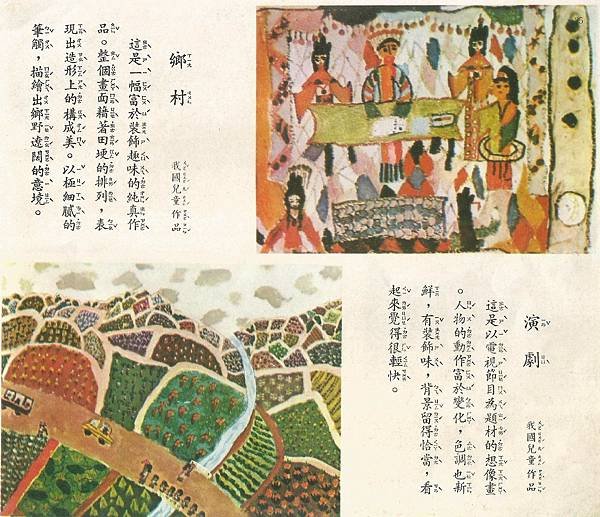 鄉村
我國兒童作品
這是一幅富於裝飾趣味的純真作
品。整個畫面藉著田埂的排列，表
現出造形上的構成美。以極細膩的
筆觸，描繪出鄉野遼闊的意境。
演劇
我國兒童作品
這是以電視節目為題材的想像畫
。人物的動作富於變化，色調也新
鮮，有裝飾味，背景留得恰當，看
起來覺得很輕快。